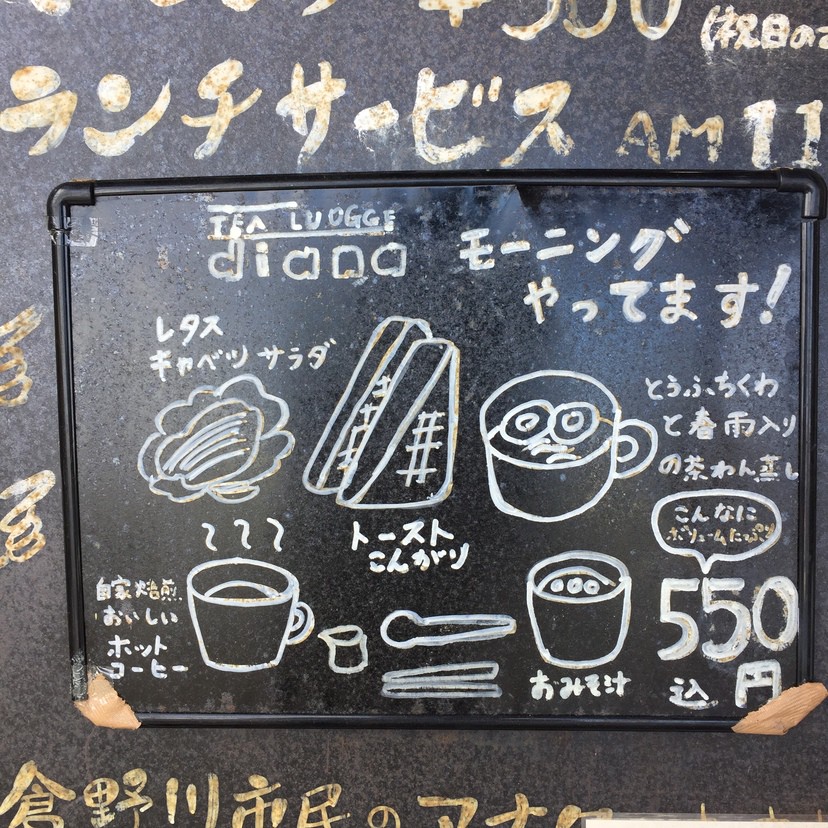 モーニング ¥550
(祝日の
ランチサービス AM11
TEA LUOGGE
diana
モーニング
やってます!
レタス
キャベツサラダ
トースト
こんがり
とうふちくわ
と春雨入り
の茶わん蒸し
こんなに
ボリュームたっぷり
550
込 円
自家焙煎
おいしい
ホット
コーヒー
おみそ汁
倉野川市民の